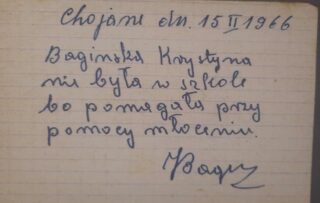 Chojane dn. 15 II 1966
Bagińska Krystyna
nie była w szkole
bo pomagała przy
pomocy młoceniu.